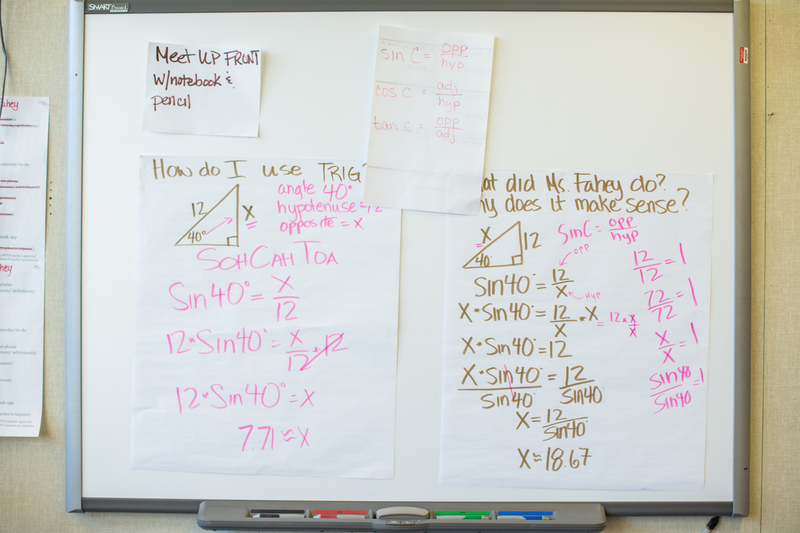 SMART Board
Meet UP FRONT
w/notebook &
pencil
sin C = opp/hyp
cos C = adj/hyp
tan C = opp/adj
How do I use TRIG?
12
x
40°
angle 40°
hypotenuse = 12
opposite = x
SOHCAHTOA
Sin40° = x/12
12 • Sin40° = x/12 • 12
12 • Sin40° = x
7.71 ≈ x
did Ms. Fahey do?
does it make sense?
x
12
40
sinC = opp/hyp
opp
Sin40° = 12/x
hyp
x • Sin40° = 12/x • x = 12 • x/x
x • Sin40° = 12
x • Sin40°/Sin40° = 12/Sin40°
x = 12/Sin40°
x ≈ 18.67
12/12 = 1
72/72 = 1
x/x = 1
sin40/sin40 = 1